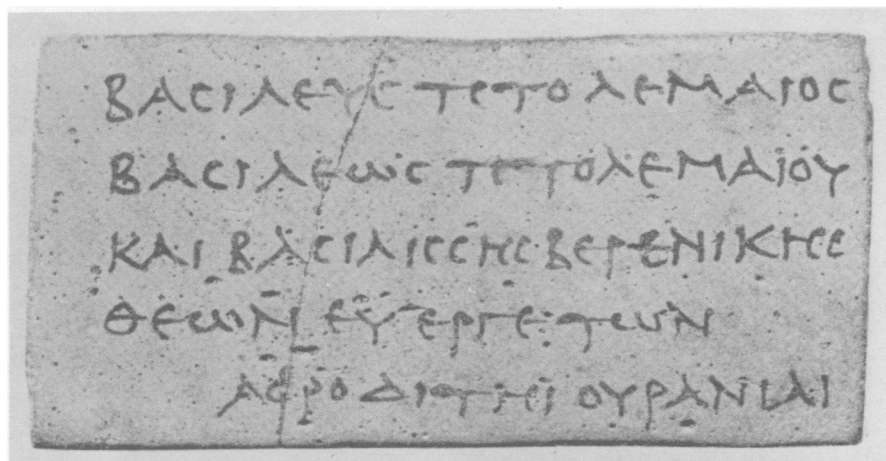 ΒΑCΙΛΕΥC ΠΤΟΛΕΜΑΙΟC
ΒΑCΙΛΕωC ΠΤΟΛΕΜΑΙΟΥ
ΚΑΙ ΒΑCΙΛΙCCΗC ΒΕΡΕΝΙΚΗC
ΘΕωΝ ΕΥΕΡΓΕΤωΝ
ΑΦΡΟΔΙΤΗΙ ΟΥΡΑΝΙΑΙ